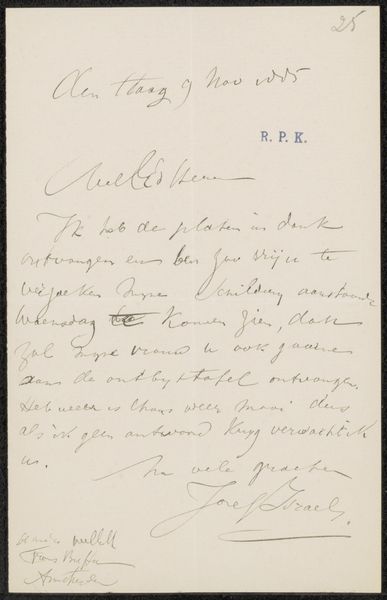 25
Den Haag 9 Nov 1885
R. P. K.
WelEd Heer
Ik heb de platen in dank
ontvangen en ben zoo vrij u te
verzoeken mijne Schildery aanstaande
Woensdag te komen zien, dan
zal mijne vrouw u ook gaarne
aan de ontbyttafel ontvangen.
Het weer is thans weer mooi dus
als ik geen antwoord kryg verwacht ik
u.
na vele groeten
Jozef Israels.
Frans Buffa
Amsterdam